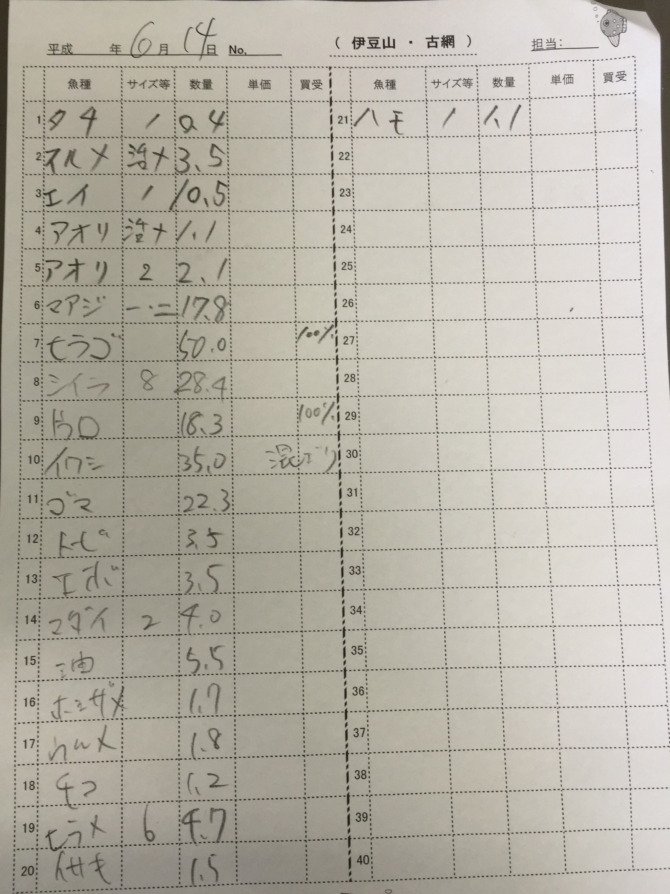 平成 年 6 月 14 日 No. ( 伊豆山 ・ 古網 ) 担当:
魚種 サイズ等 数量 単価 買受 魚種 サイズ等 数量 単価 買受
1 タチ 1 0.4 21 ハモ 1 1.1
2 スルメ 活〆 3.5 22
3 エイ 1 10.5 23
4 アオリ 活〆 1.1 24
5 アオリ 2 2.1 25
6 マアジ 一・二 17.8 26
7 ヒラゴ 50.0 100% 27
8 シイラ 8 28.4 28
9 ドウロ 18.3 100% 29
10 イワシ 35.0 混ごり 30
11 ゴマ 22.3 31
12 トビ 3.5 32
13 エボ 3.5 33
14 マダイ 2 4.0 34
15 油 5.5 35
16 ホシザメ 1.7 36
17 ウルメ 1.8 37
18 1.2 38
19 ヒラメ 6 4.7 39
20 イサキ 1.5 40